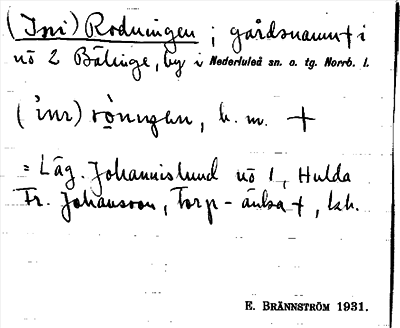 (Ini) Rodningen ; gårdsnamn † i
nö 2 Bälinge, by i Nederluleå sn. o. tg. Norrb. l.
( ̓inr) rònngən, b. m. +
= Läg. Johannislund nö 1, Hulda
Fr. Johansson, Torp-änka †, bsk.
E. BRÄNNSTRÖM 1931.